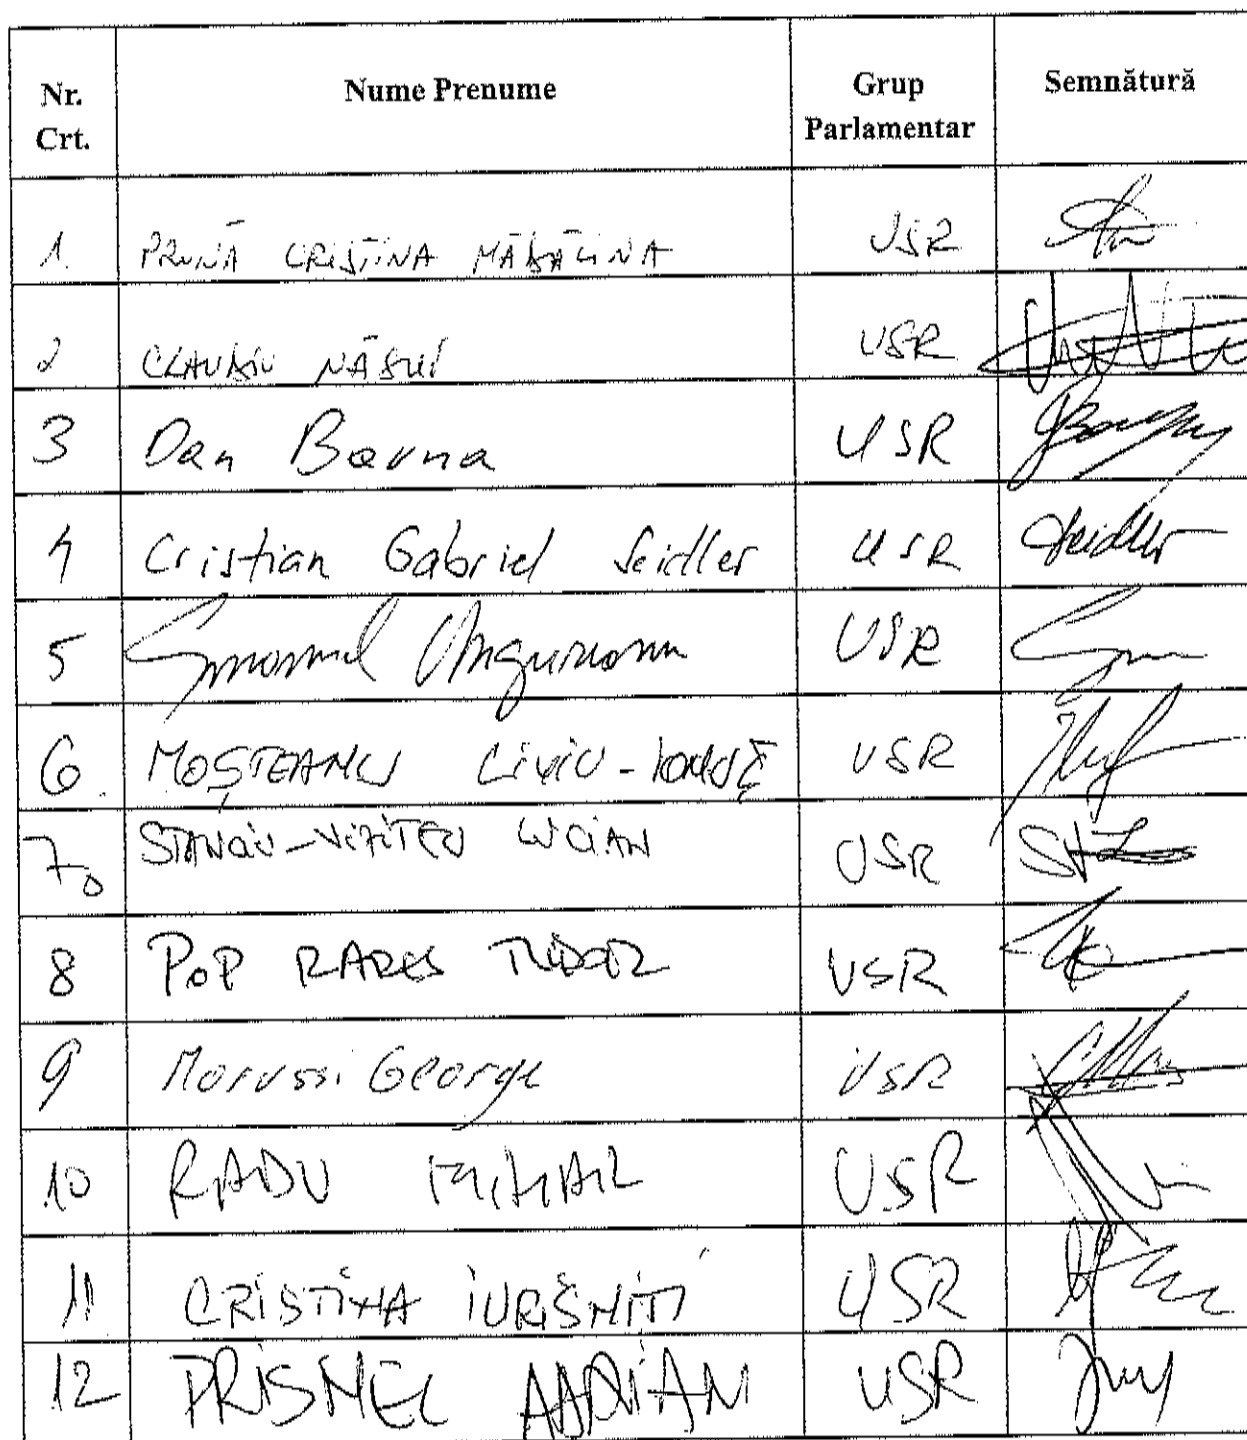 Nr. Crt. Nume Prenume Grup Parlamentar Semnătură
1. PRUNĂ CRISTINA MĂDĂLINA USR
2 CLAUDIU NĂSUI USR
3 Dan Barna USR
4 Cristian Gabriel Seidler USR Seidler
5 Emanuel Ungureanu USR
6. MOȘTEANU LIVIU-IONUȚ USR
7. STANCIU-VIZITEU LUCIAN USR
8 POP RARES TUDOR USR
9 Marussi George USR
10 RADU MIHAIL USR
11 CRISTINA IURIȘNIȚI USR
12 PRISNEL ADRIAN USR